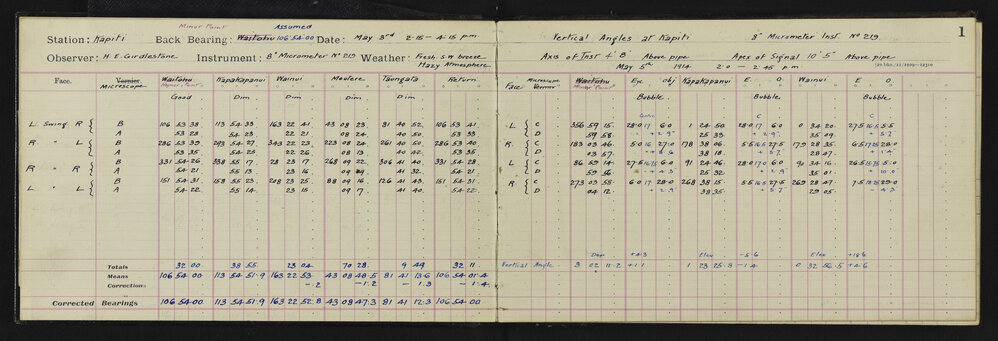 Minor Point Assumed
Station: Kapiti Back Bearing: Waitohu 106 54 00 Date: May 3rd 2-15 – 4-15 pm
Observer: H E Girdlestone Instrument: 8" Micrometer No 219 Weather: Fresh S.W breeze
Hazy Atmosphere
Face. Vernier Microscope Waitohu Minor Point Kapakapanui Wainui Moutere Taungata Return
Good Dim Dim Dim Dim
L Swing R B 106 53 38 113 54 33 163 22 41 43 08 23 81 40 52 106 53 41
A 53 28 54 23 22 21 08 24 40 50 53 33
R " L B 286 53 39 293 54 27 343 22 23 223 08 24 261 40 50 286 53 40
A 53 35 54 25 22 26 08 13 40 42 53 35
R " R B 331 54 26 338 55 17 28 23 17 268 09 22 306 41 40 331 54 28
A 54 21 55 13 23 16 41 32 54 21
L " L B 151 54 31 158 55 23 208 23 25 88 09 16 126 41 43 151 54 31
A 54 22 55 14 23 15 09 7 41 40 54 22
Totals 32 00 38 55 23 04 70 28 9 49 32 11
Means 106 54 00 113 54 51.9 163 22 53 43 08 48.5 81 41 13.6 106 54 01.4
Corrections - .2 - 1.2 - 1.3 - 1.4
Corrected Bearings 106 54 00 113 54 51.9 163 22 52.8 43 08 47.3 81 41 12.3 106 54 00
1
Vertical Angles at Kapiti 8" Micrometer Inst. No 219
Axis of Inst 4' 8" Above pipe Apex of Signal 10' 5" Above pipe
May 5th 1914 2-0 – 2-45 pm
Face Microscope Vernier Waitohu Minor Point Eye obj Kapakapanui E. O Wainui E O
Bubble Bubble Bubble
L C 356 59 15 28.0 17 6.0 1 24 50 28.0 17 6.0 0 34 20 27.5 16.5 5.5
D 59 58 25 33 35 09
R C 183 03 46 5.0 16 27.0 178 38 06 5.5 16.5 27.5 179 28 35 6.5 17.25 28.0
D 03 57 38 18 28 47
L C 86 59 14 91 24 46 28.0 17.0 6.0 90 34 16
D 59 56 25 32 35 01
R C 273 03 58 6.0 17 28.0 268 38 15 5.5 16.5 27.5 269 28 47
D 04 12 38 35 29 05
Dep +4.3 Elev -5.6 Elev +18.6
Vertical Angle 3 02 11.2 +1.1 1 23 25.8 -1.4 0 32 56.5 +4.6